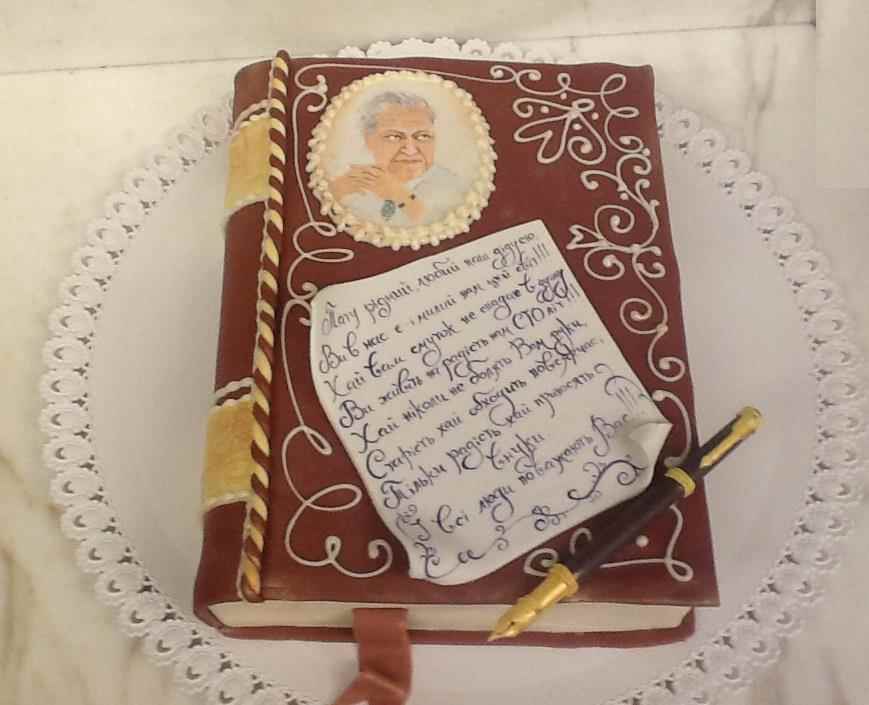 Тату рідний, любий наш дідусю,
Ви в нас є і милий нам цей світ!!!
Хай Вам смуток не спадає в душу
Ви живіть на радість нам СТО літ!!!
Хай ніколи не болять Вам руки,
Старість хай обходить повсякчас,
Тільки радість хай приносять
внуки.
І всі люди поважають Вас!!!